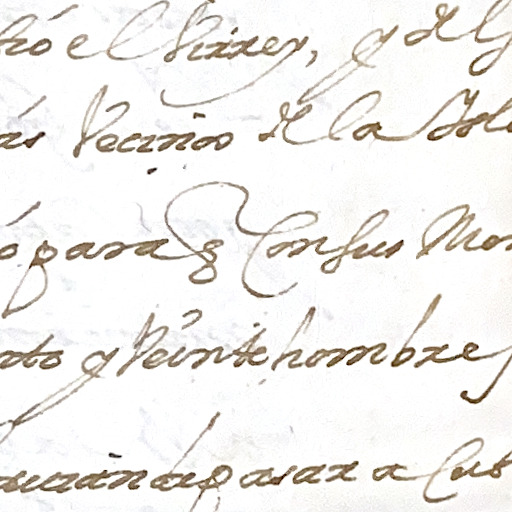 bró el Virrey, y el G
as Vecino de la Isla
ó para q Con sus Mon
nto y Veinte hombres
aurian de pasar a Cub